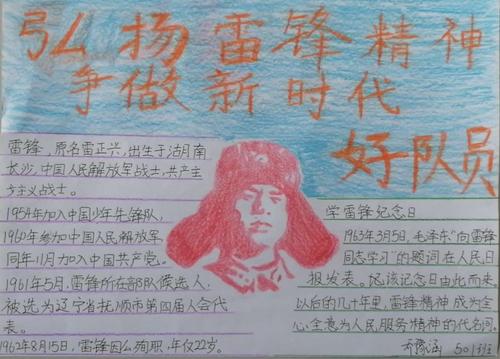 弘扬雷锋精神
争做新时代
好队员
雷锋，原名雷正兴，出生于湖南
长沙，中国人民解放军战士，共产主
义主义战士。
1954年加入中国少年先锋队，
1960年参加中国人民解放军，
同年11月加入中国共产党。
1961年5月，雷锋所在部队候选人，
被选为辽宁省抚顺市第四届人会代
表。
1962年8月15日，雷锋因公殉职，年仅22岁。
学雷锋纪念日
1963年3月5日，毛泽东“向雷锋
同志学习”的题词在人民日
报发表。该纪念日由此而来
以后的几十年里，雷锋精神成为全
心全意为人民服务精神的代名词。